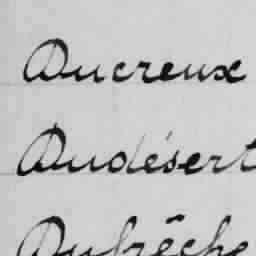 Ducreux
Dudésert
Dufrêche